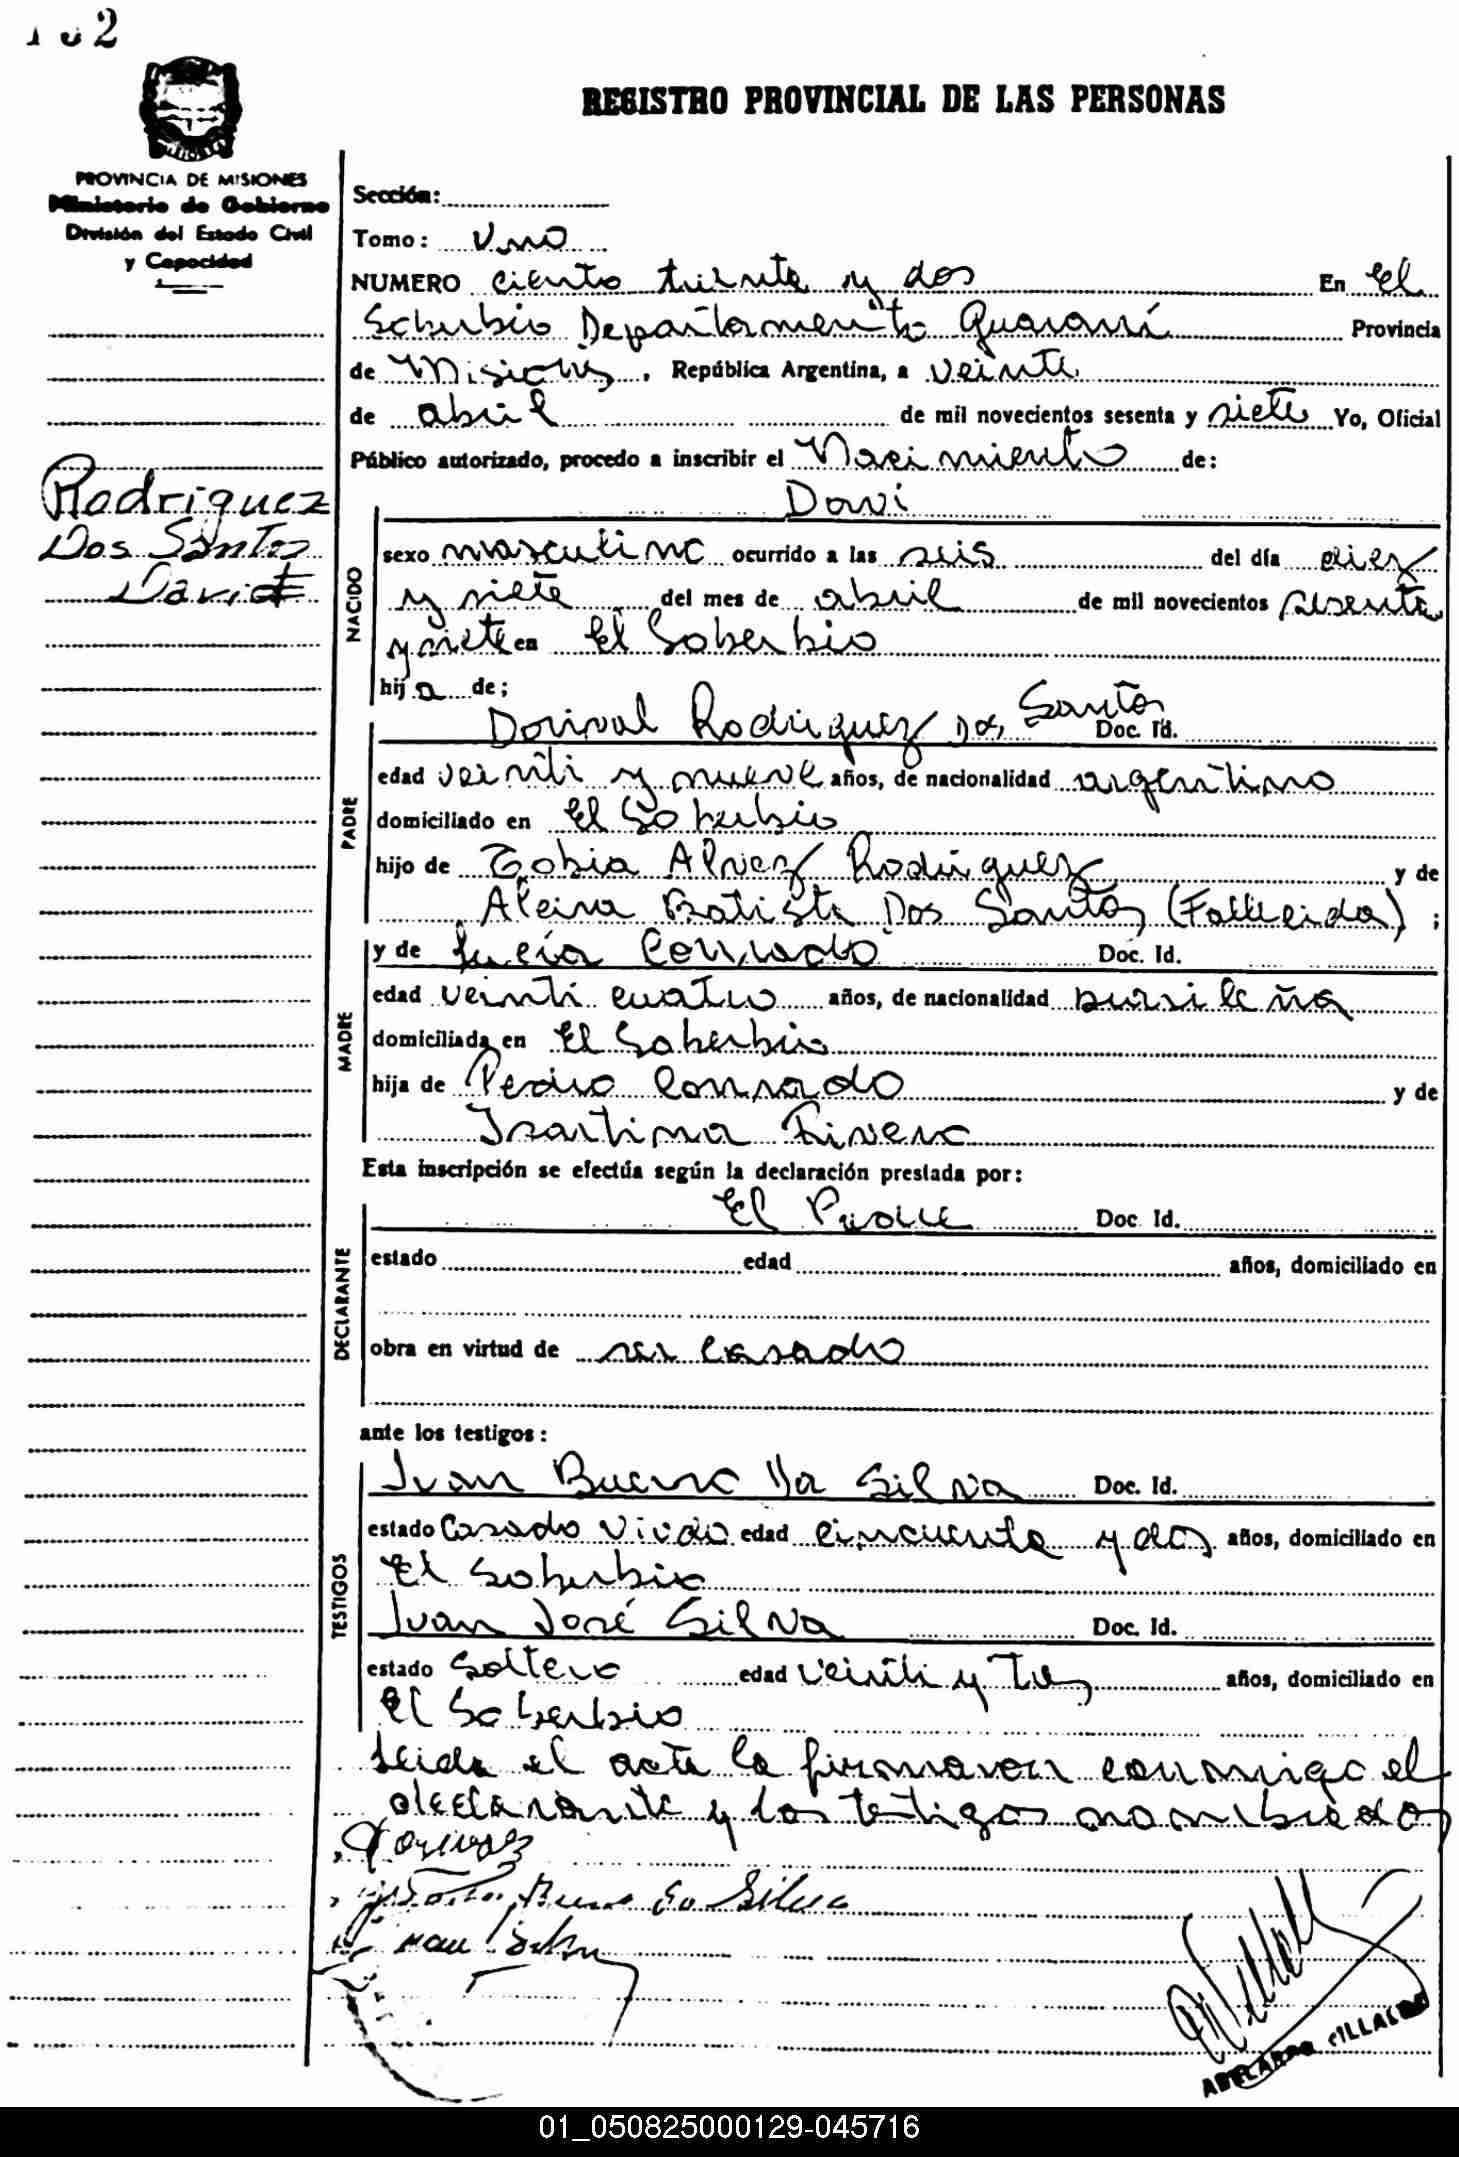 132
REGISTRO PROVINCIAL DE LAS PERSONAS
PROVINCIA DE MISIONES
Ministerio de Gobierno
División del Estado Civil
y Capacidad
Sección:
Tomo: Uno
NUMERO ciento treinta y dos En El
Soberbio Departamento Guaraní Provincia
de Misiones, República Argentina, a veinte
de abril de mil novecientos sesenta y siete Yo, Oficial
Público autorizado, procedo a inscribir el Nacimiento de:
Rodriguez
Dos Santos
David
Davi
NACIDO
sexo masculino ocurrido a las seis del día diez
y siete del mes de abril de mil novecientos sesenta
y siete en El Soberbio
hijo de;
PADRE
Dorival Rodriguez Dos Santos Doc. Id.
edad veinti y nueve años, de nacionalidad argentino
domiciliado en El Soberbio
hijo de Tobia Alvez Rodriguez y de
Batista Dos Santos (Fallecida);
MADRE
y de Lucía Conrado Doc. Id.
edad veinti cuatro años, de nacionalidad brasileña
domiciliada en El Soberbio
hija de Pedro Conrado y de
Esta inscripción se efectúa según la declaración prestada por:
DECLARANTE
El Padre Doc. Id.
estado edad años, domiciliado en
obra en virtud de ser casado
ante los testigos:
TESTIGOS
Juan Bueno Da Silva Doc. Id.
estado Casado Viudo edad cincuenta y dos años, domiciliado en
El Soberbio
Juan José Silva Doc. Id.
estado Soltero edad veinti y tres años, domiciliado en
El Soberbio
Leida el acta la firmaron conmigo el
declarante y los testigos nombrados
Silva
ABELARDO VILLALBA
01_050825000129-045716